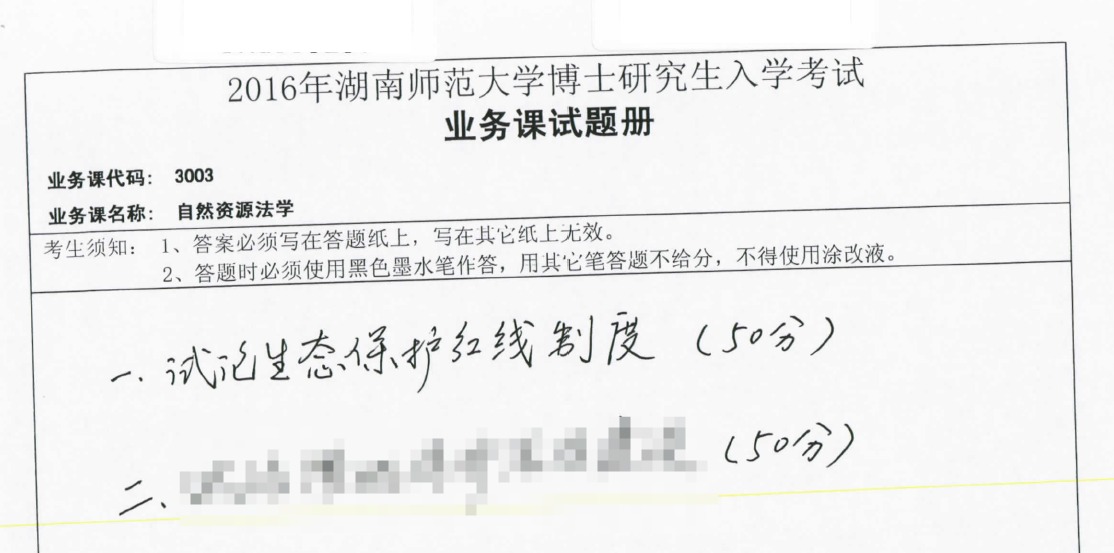 2016年湖南师范大学博士研究生入学考试
业务课试题册
业务课代码： 3003
业务课名称： 自然资源法学
考生须知： 1、答案必须写在答题纸上，写在其它纸上无效。
2、答题时必须使用黑色墨水笔作答，用其它笔答题不给分，不得使用涂改液。
一、试论生态保护红线制度（50分）
二、（50分）